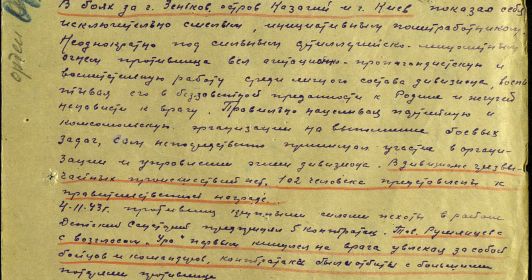 В боях за г. Зеньков, остров Казачий и г. Киев показал себя
исключительно смелым, инициативным политработником.
Неоднократно под сильным артиллерийско-минометным
огнем противника вел агитационно-пропагандистскую и
воспитательную работу среди личного состава дивизиона, воспи-
тывая его в беззаветной преданности к Родине и жгучей
ненависти к врагу. Правильно нацеливал партийную и
комсомольскую организации на выполнение боевых
задач, сам непосредственно принимал участие в органи-
зации и управлении огнем дивизиона. В дивизионе чрезвы-
чайных происшествий нет, 102 человека представлены к
правительственной награде.
4-11-43г. противник крупными силами пехоты в районе
Детский Санаторий предпринял 5 контратак. Тов.
с возгласом "Ура" первым кинулся на врага увлекая за собой
бойцов и командиров, контратаки были отбиты с большими
потерями противника
орден